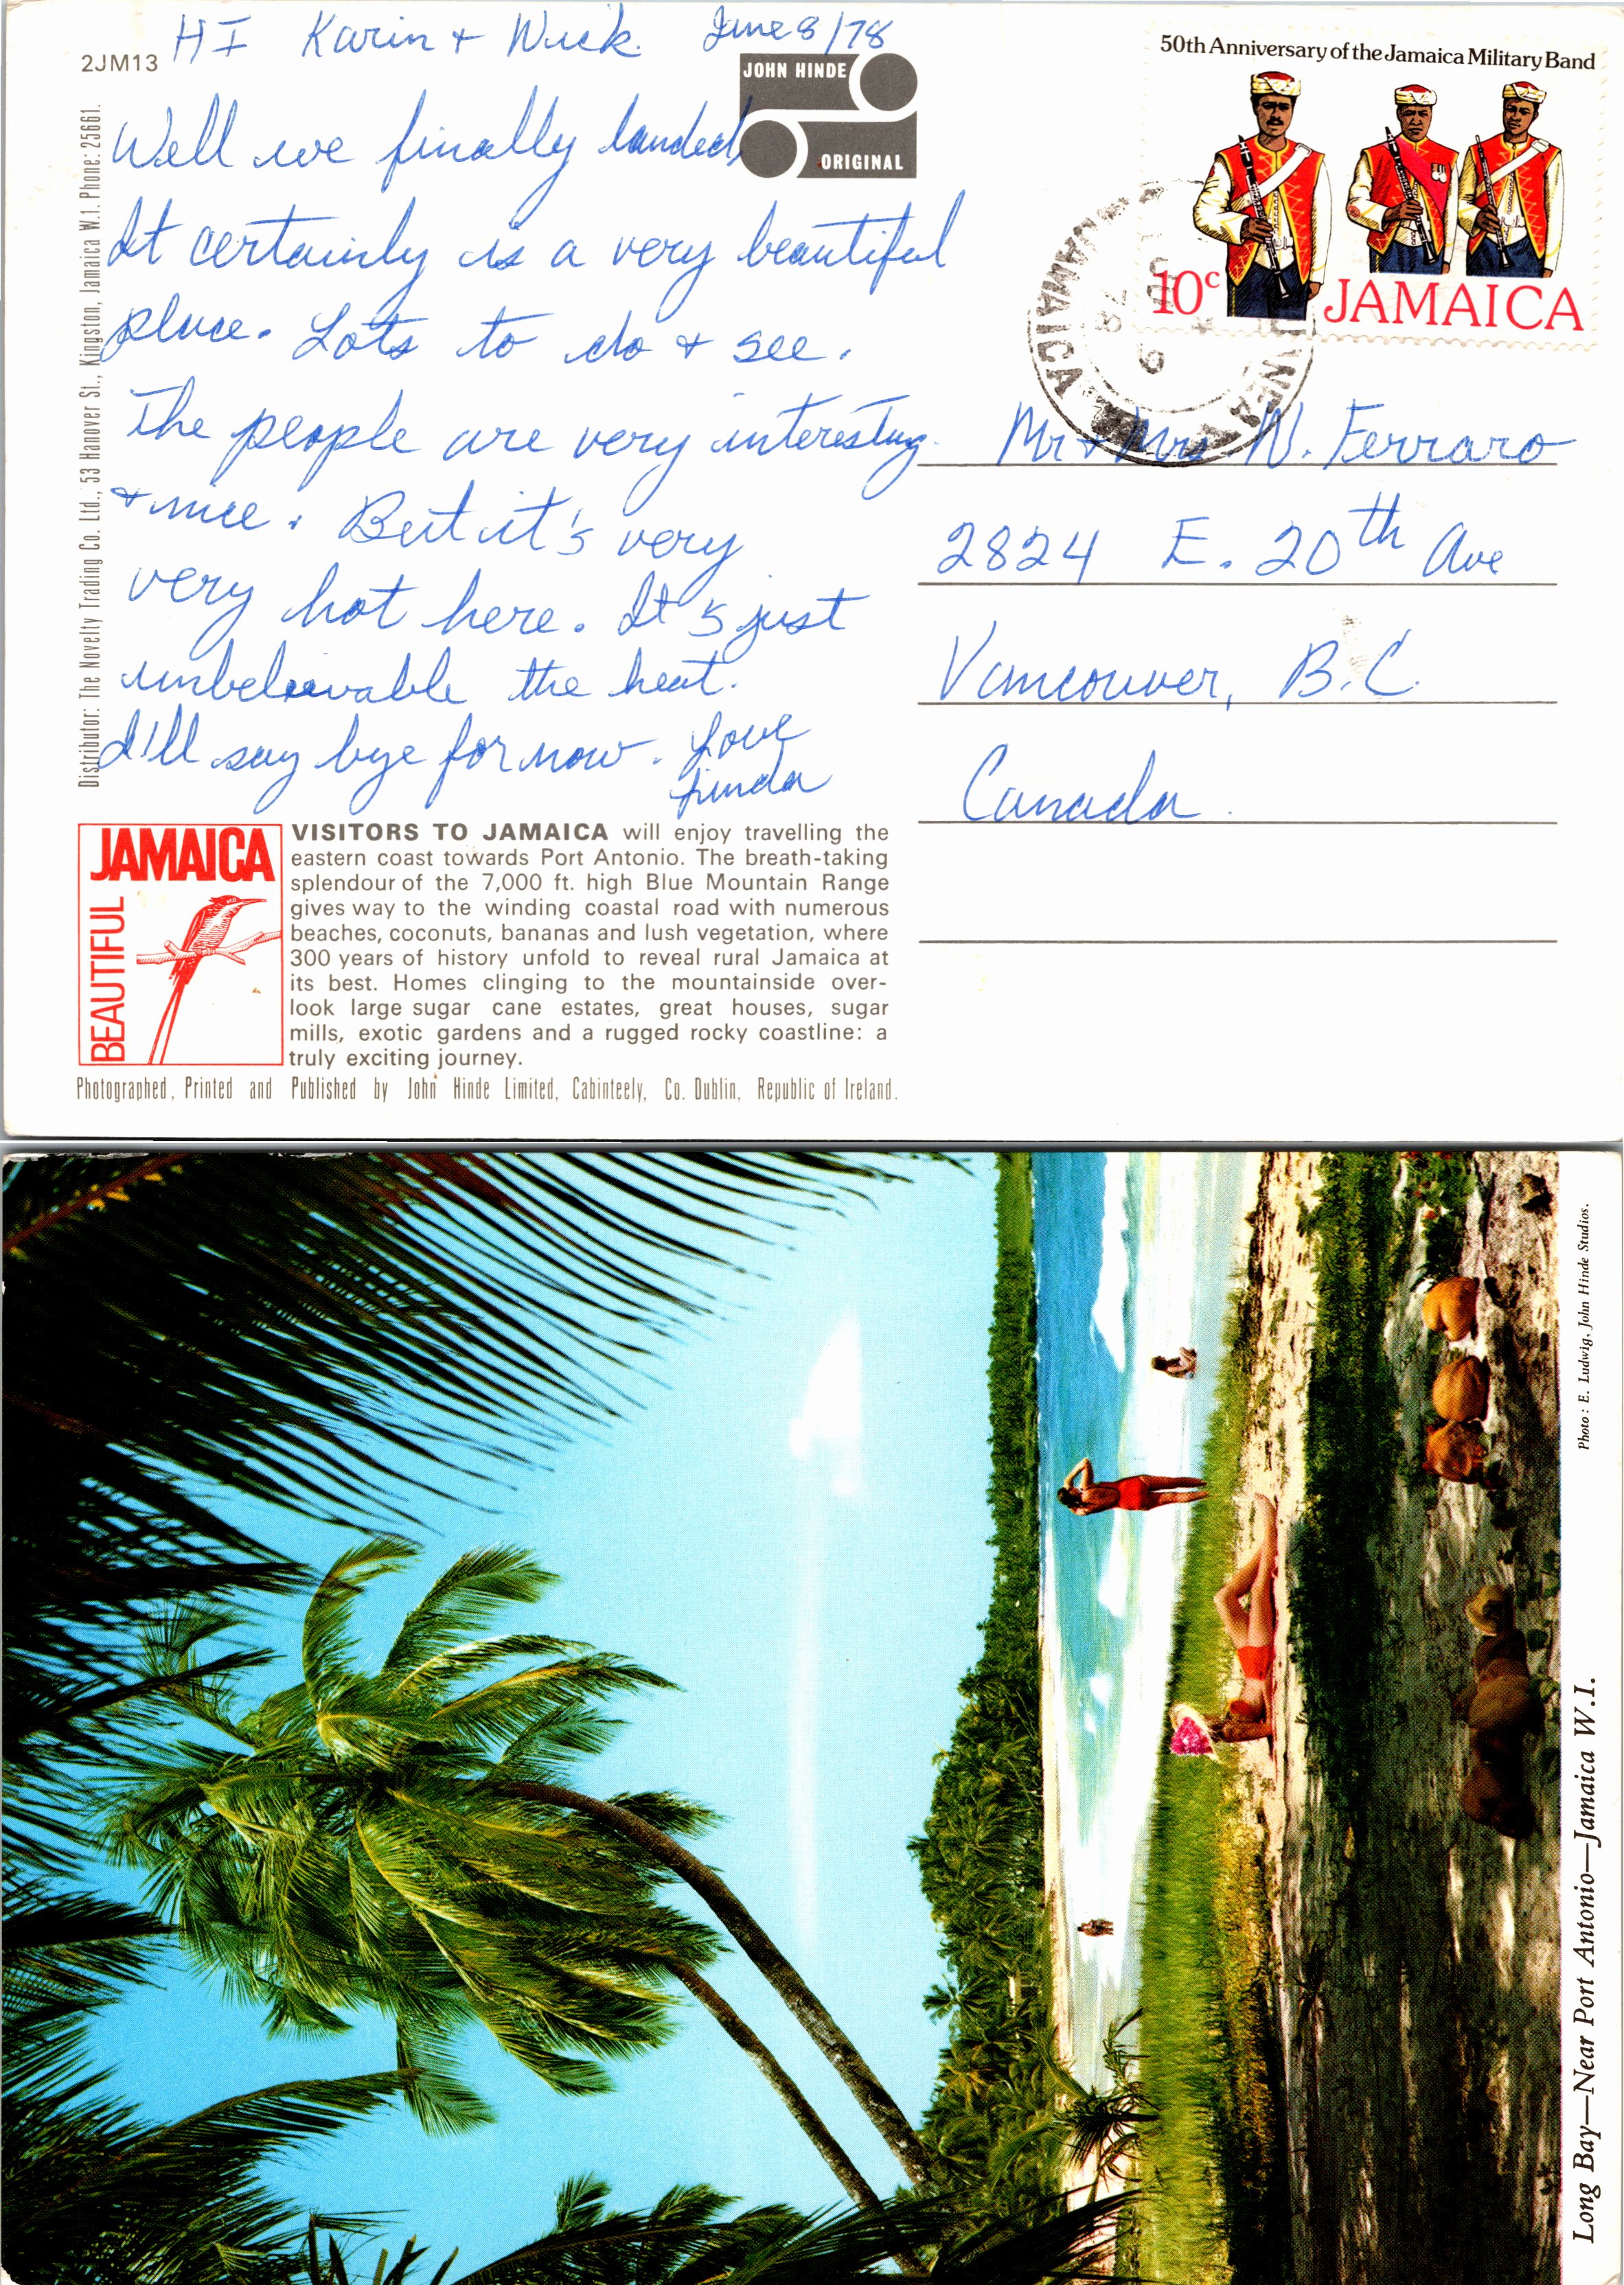 HI Karin + Wick. June 8/78
2JM13
JOHN HINDE
ORIGINAL
Well we finally landed,
It certainly is a very beautiful
place. Lots to do + see.
The people are very interesting
+ nice. But it's very
very hot here. It's just
unbeleevable the heat.
I'll say bye for now. Love
Linda
Distributor: The Novelty Trading Co. Ltd., 53 Hanover St., Kingston, Jamaica W.I. Phone: 25661.
50th Anniversary of the Jamaica Military Band
10c JAMAICA
JAMAICA
78
9
Mr + Mrs N. Ferraro
2824 E. 20th Ave
Vancouver, B.C.
Canada.
JAMAICA
BEAUTIFUL
VISITORS TO JAMAICA will enjoy travelling the
eastern coast towards Port Antonio. The breath-taking
splendour of the 7,000 ft. high Blue Mountain Range
gives way to the winding coastal road with numerous
beaches, coconuts, bananas and lush vegetation, where
300 years of history unfold to reveal rural Jamaica at
its best. Homes clinging to the mountainside over-
look large sugar cane estates, great houses, sugar
mills, exotic gardens and a rugged rocky coastline: a
truly exciting journey.
Photographed, Printed and Published by John Hinde Limited, Cabinteely, Co. Dublin, Republic of Ireland.
Long Bay—Near Port Antonio—Jamaica W.I.
Photo: E. Ludwig, John Hinde Studios.